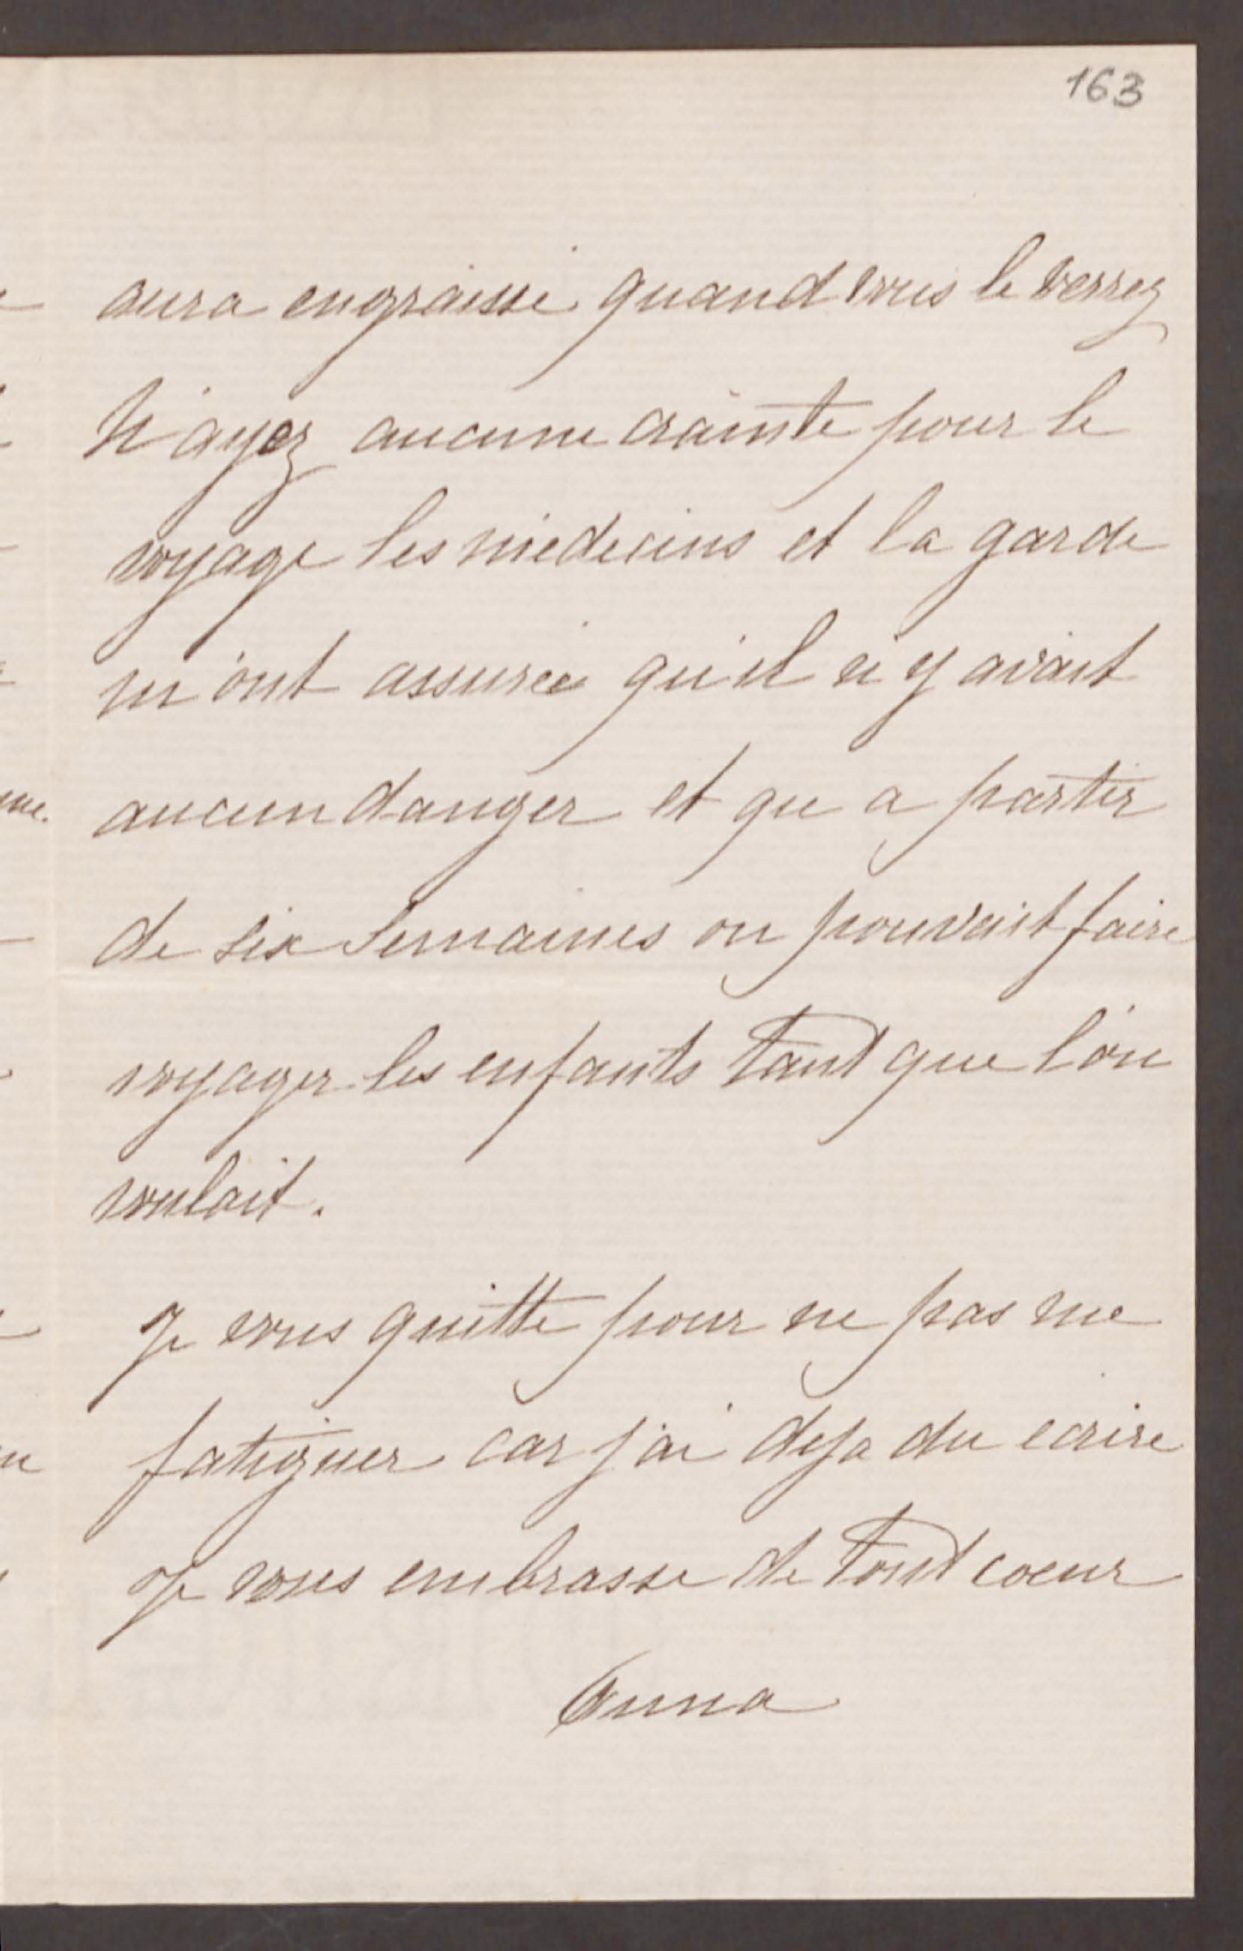 163
aura engraissé quand vous le verrez
N'ayez aucune crainte pour le
voyage les médecins et la garde
m'ont assurée qu'il n'y avait
aucun danger et que a partir
de six semaines on pouvait faire
voyager les enfants tant que l'on
voulait.
Je vous quitte pour ne pas me
fatiguer car j'ai deja du ecrire
Je vous embrasse de tout coeur
Anna